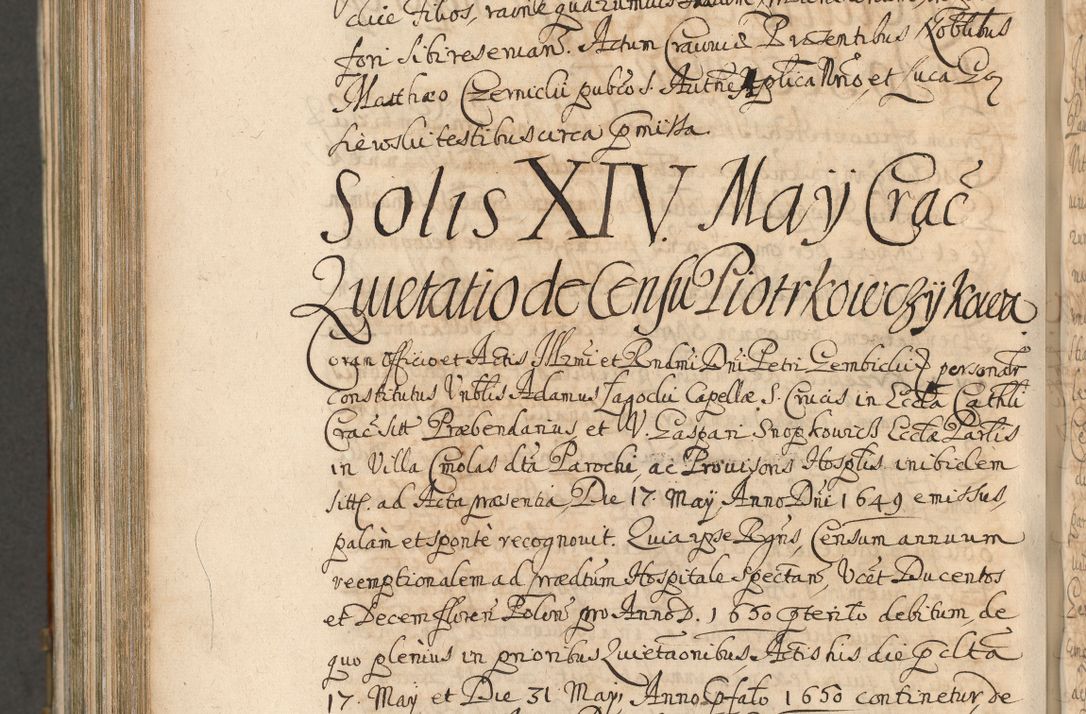 fori sibi reseruans. Actum Cracouiæ Præsentibus Noblibus
Matthæo Czernicki publco S. Authe Aplica Nrio, et Luca Go
siewski testibus circa pmissa.
Solis XIV. Maÿ Crac
Quietatio de Censu Piotrkowczÿkowa
Coram Officio et Actis Illmi et Rndmi Dni Petri Gembicki personlr
constitutus Vnblis Adamus Jagocki Capellæ S. Crucis in Eccla Cathli
Crac: sitt Præbendarius, et V. Gaspari Snopkowicz Ecclæ Parlis
in Villa Cmolas dta Parochi, ac Prouisoris Hosplis inibidem
sitt. ad Acta præsentia, Die 17. Maÿ, Anno Dni 1649 emissus,
palàm et spontè recognouit. Quia ipse Rgns, Censum annuum
reemptionalem ad prædtum Hospitale spectan, Vcet Ducentos
et Decem floren Polon pro Anno D. 1650 pterito debitum, de
quo plenius in prioribus Quietaonibus Actis his die pclta
17. Maÿ et Die 31 Maÿ, Anno pfato 1650 continetur, de